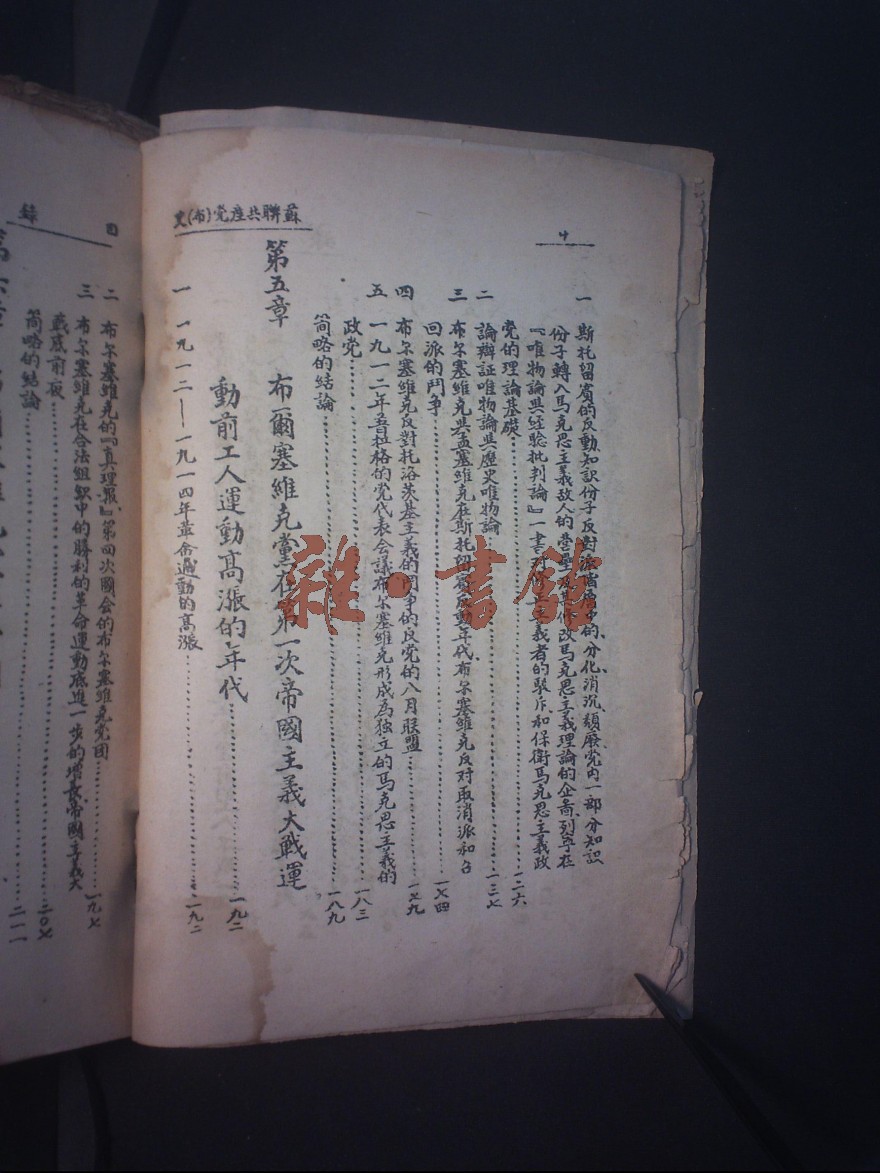 蘇聯共產党(布)史
一 斯托留賓的反動、知识份子反對派
中的、分化、消沉、頽廢、党内一部分知识
份子轉入馬克思主義敌人的营壘及其修改馬克思主義理論的企啚、列寧在
『唯物論與经验批判論』一書
義者的駁斥、和保衛馬克思主義政
党的理論基礎……一二六
二 論辯証唯物論與歷史唯物論……一三七
三 布尔塞維克與孟塞維克在斯托留賓反動年代、布尔塞維克反对取消派和召
回派的鬥争……一七四
四 布尔塞維克反對托洛茨基主義的鬥争的反党的八月联盟……一七九
五 一九一二年普拉格的党代表会議布尔塞維克形成為独立的馬克思主義的
政党……一八三
简略的結論……一八九
第五章 布爾塞維克黨在第一次帝國主義大戰運
動前工人運動高漲的年代……一九二
一 一九一二—一九一四年革命運動的高漲……一九二
四
錄
二 布尔塞維克的『真理報』第四次國会的布尔塞維克党团……一九七
三 布尔塞維克在合法組织中的勝利的革命運動底進一步的增長、帝國主義大
戰底前夜……二〇七
简略的結論……二一一
雜·書館